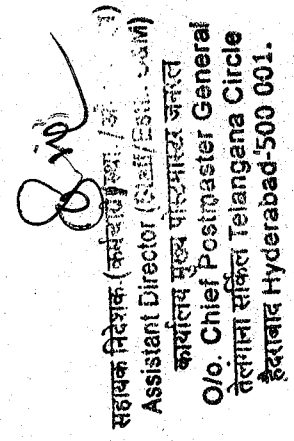 सहायक निदेशक (कर्मचारी/स्था./
Assistant Director (Staff/Estt.
कार्यालय मुख्य पोस्टमास्टर जनरल
O/o. Chief Postmaster General
तेलंगाना सर्किल Telangana Circle
हैदराबाद Hyderabad-500 001.